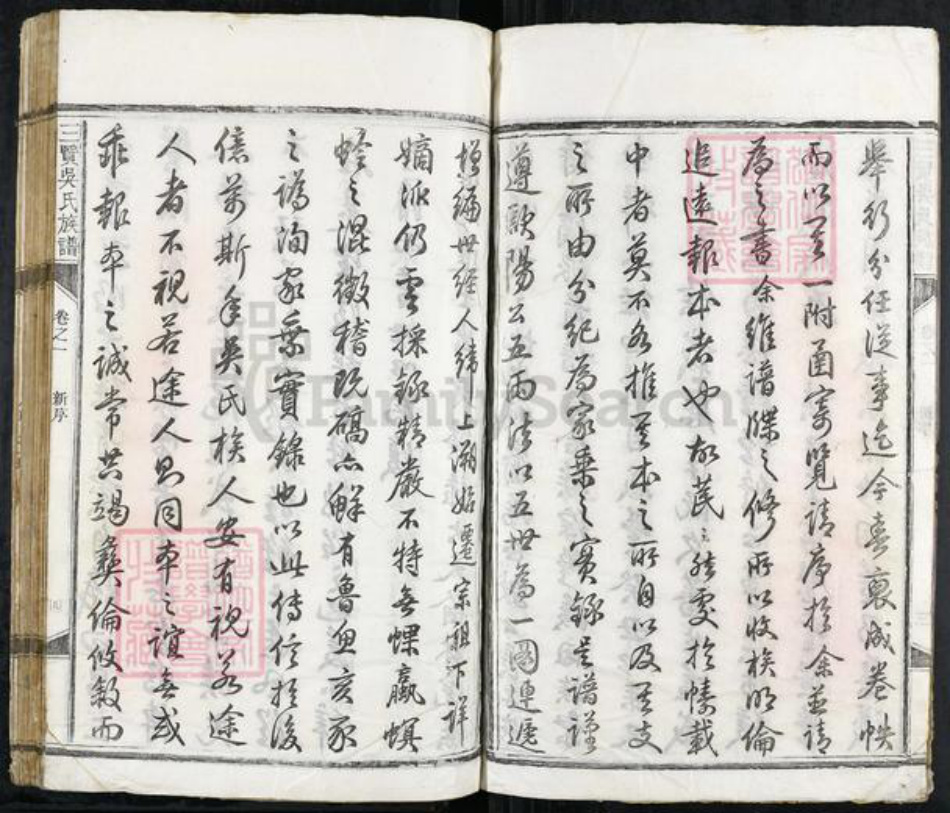 舉行分任從事迄今春裒成卷帙
而以一附函寄覽請序於余並請
為之書余維譜牒之修所以收族明倫
追遠報本者也故芸芸然處於幬載
中者莫不各推其本之所自以及其支
之所由分紀為家乘之實錄是譜謹
遵歐陽公五兩法以五世為一圖連遞
增編世經人緯上溯始遷宗祖下詳
嫡派仍雲採錄精嚴不特無螺蠃螟
蛉之混徵稽既確亦鮮有魯魚亥豕
之譌洵家乘實錄也以此傳信於後
億萬斯年吳氏族人安有視若途
人者不視若途人則同本之誼無或
乖報本之誠常共竭彝倫攸敘而
三賢吳氏族譜
卷之一
新序
FamilySearch